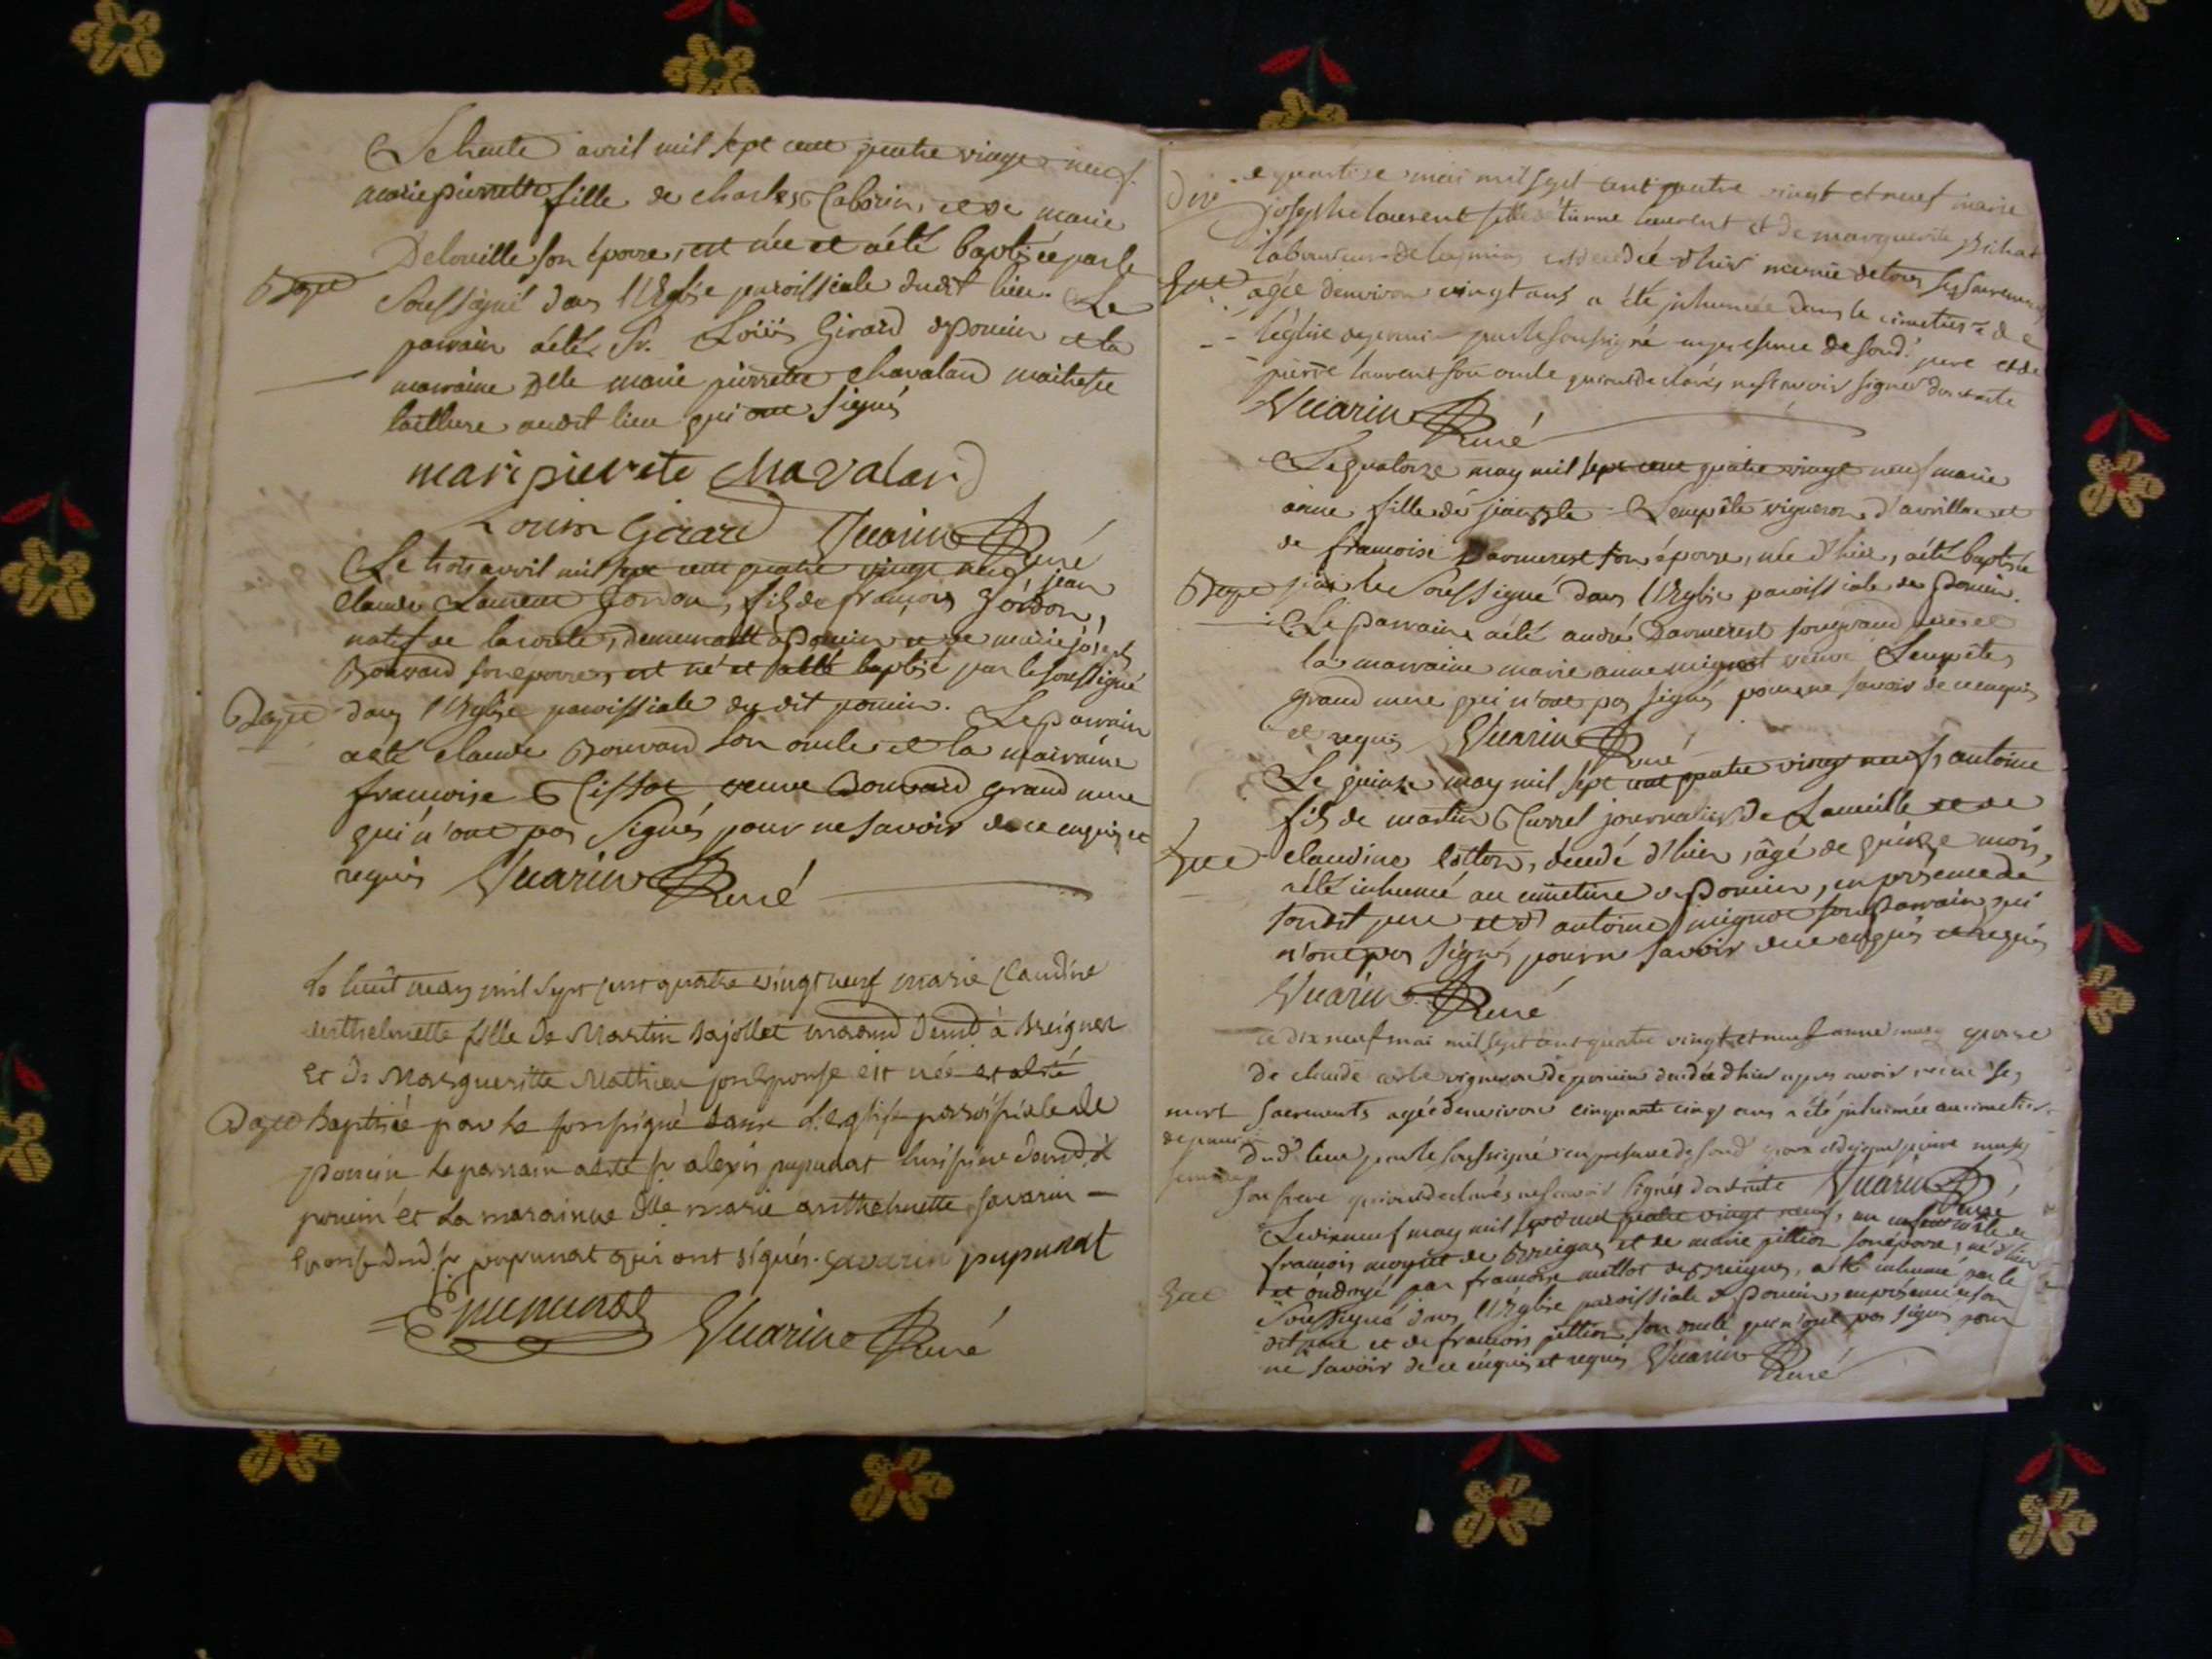 Le trente avril mil sept cent quatre vingt neuf
marie pierrette fille de charles Cabo et de marie
Deloueille son épouse, est née et a été baptisée par le
Bapt
soussigné dans l'Eglise paroissiale dudit lieu. Le
parrain a été Sr. Loüis Girard de pouin et la
marraine Dlle marie pierrette chavaland maitresse
tailleuse audit lieu qui ont signés
mari pierete chavaland
Girard Vuarin Curé
Le trois avril mil sept cent quatre vingt neuf, jean
claude Laurent Gordon, fils de françois Gordon,
natif de demeurant à pouin et de marie joseph
Bouvard son epouse, est né et a été baptisé par le soussigné
Bapt dans l'Eglise paroissiale du dit pouin. Le parrain
a été claude Bouvard son oncle et la mairaine
francoise Tissot veuve Bouvard grand mere
qui n'ont pas signés pour ne savoir de ce enquis et
requis Vuarin Curé
le huit may mil sept cent quatre vingt neuf marie Claudine
anthelmette fille de Martin Sajollet demt à Breignes
et de Margueritte Mathieu son Epouse est née et a été
Bapt baptisée par le soussigné dans l'eglise paroissiale de
pouin le parrain a été sr alexis pupunat demt à
pouin et la marainne Dlle marie anthelmette savarin
Epouse dud. sr pupunat qui ont signés. savarin pupunat
pupunat Vuarin Curé
le quatorze mai mil sept cent quatre vingt et neuf marie
josephe laurent fille d'etienne laurent et de marguerite Pichat
laboureur de est decedée d'hier munie de tous ses sacremens
agée d'environ vingt ans a été inhumée dans le cimetiere de
l'église de pouin par le soussigné en presence de sond. pere et de
pierre laurent son oncle qui ont declarés ne savoir signer
Vuarin Curé
Le quatorze may mil sept cent quatre vingt neuf marie
anne fille de jean Bte Lempête vigneron d'avrillac et
de francoise Darmerest son épouse, née d'hier, a été baptisée
Bapt par le soussigné dans l'Eglise paroissiale de pouin.
Le parrain a été andré Darmerest son grand pere et
la marraine marie anne mignot veuve Lempête
grand mere qui n'ont pas signés pour ne savoir de ce enquis
et requis Vuarin Curé
Le quinze may mil sept cent quatre vingt neuf, antoine
fils de martin Curvel journalier de Lameille et de
claudine Cotton, decedé d'hier, âgé de quinze mois,
a été inhumé au cimetiere de pouin, en présence de
sondit pere et d'antoine mignot son parrain qui
n'ont pas signés pour ne savoir de ce enquis et requis
Vuarin Curé
Le dix neuf mai mil sept cent quatre vingt et neuf anne epouse
de claude vigneron de pouin decedée d'hier apres avoir reçue ses
mort sacrements agée d'environ cinquante cinq ans a été inhumée au cimetiere
dud. lieu par le soussigné en presence de sond epoux et de pierre
son frere qui ont declarés ne savoir signés Vuarin Curé
Le dix neuf may mil sept cent quatre vingt neuf, un enfant mâle de
francois moynet de Breignes et de marie pittion son épouse, né d'hier
et óndoyé par francoise millot de Breignes, a été inhumé par le
soussigné dans l'Eglise paroissiale de pouin, en présence de son
dit pere et de francois pittion son oncle qui n'ont pas signés pour
ne savoir de ce enquis et requis Vuarin Curé